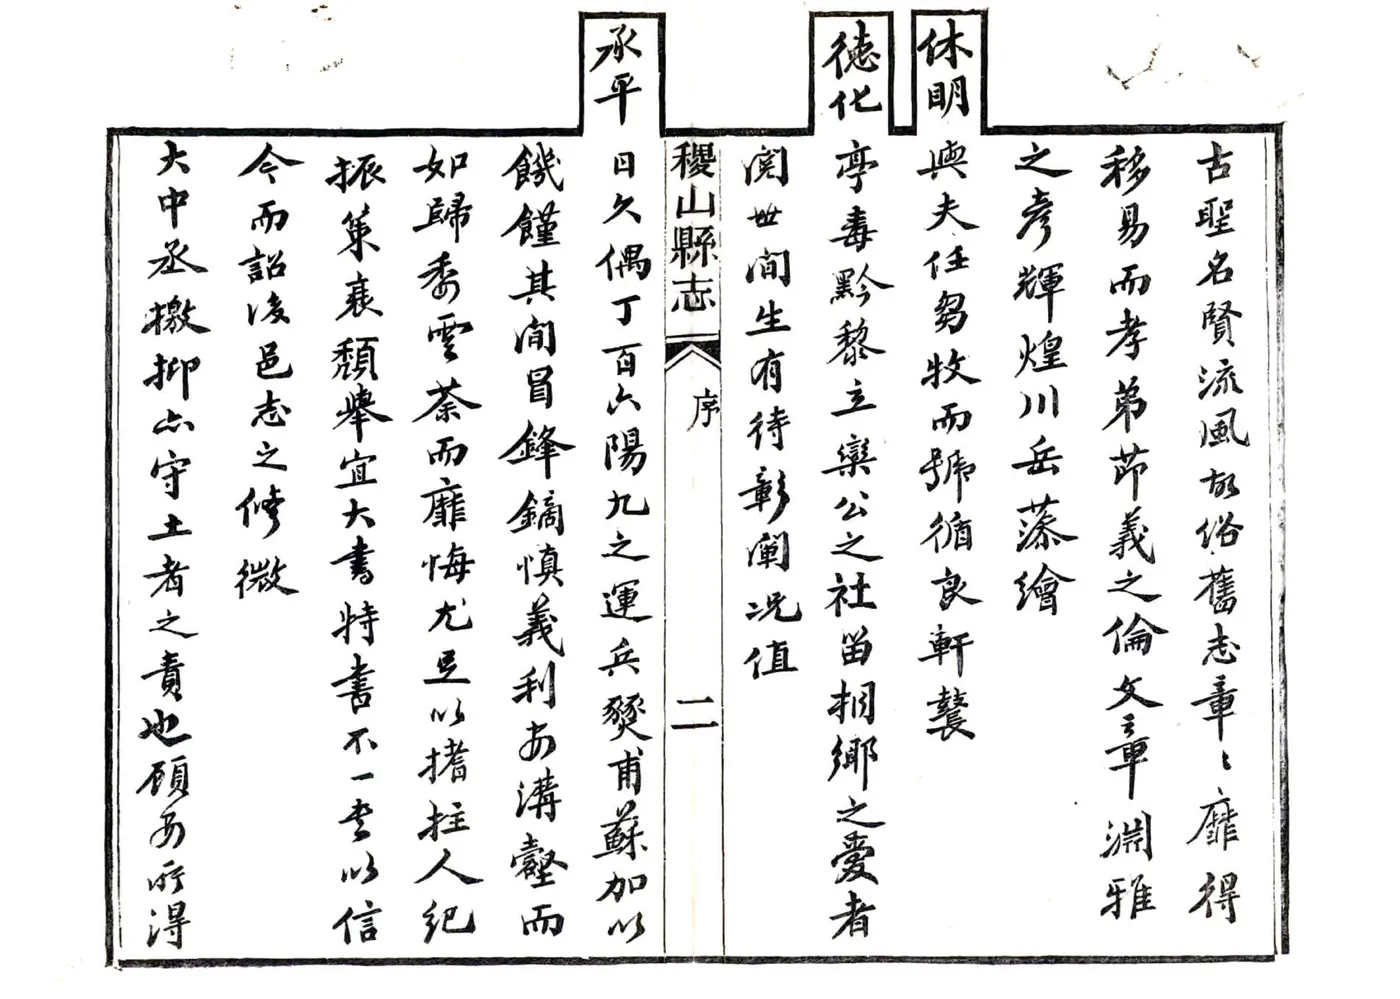 古聖名賢流風故俗舊志章〻靡得
移易而孝弟節義之倫文章淵雅
之彥輝煌川岳藻繪
休明與夫任芻牧而號循良軒鼚
德化亭毒黔黎立欒公之社留桐鄉之愛者
閱世間生有待彰闡況值
稷山縣志
序
二
承平日久偶丁百六陽九之運兵燹甫蘇加以
饑饉其間冒鋒鏑慎義利安溝壑而
如歸委雲荼而靡悔尤足以搘拄人紀
振集衰頹舉宜大書特書不一書以信
今而詔後邑志之修微
大中丞檄抑亦守土者之責也顧安所得